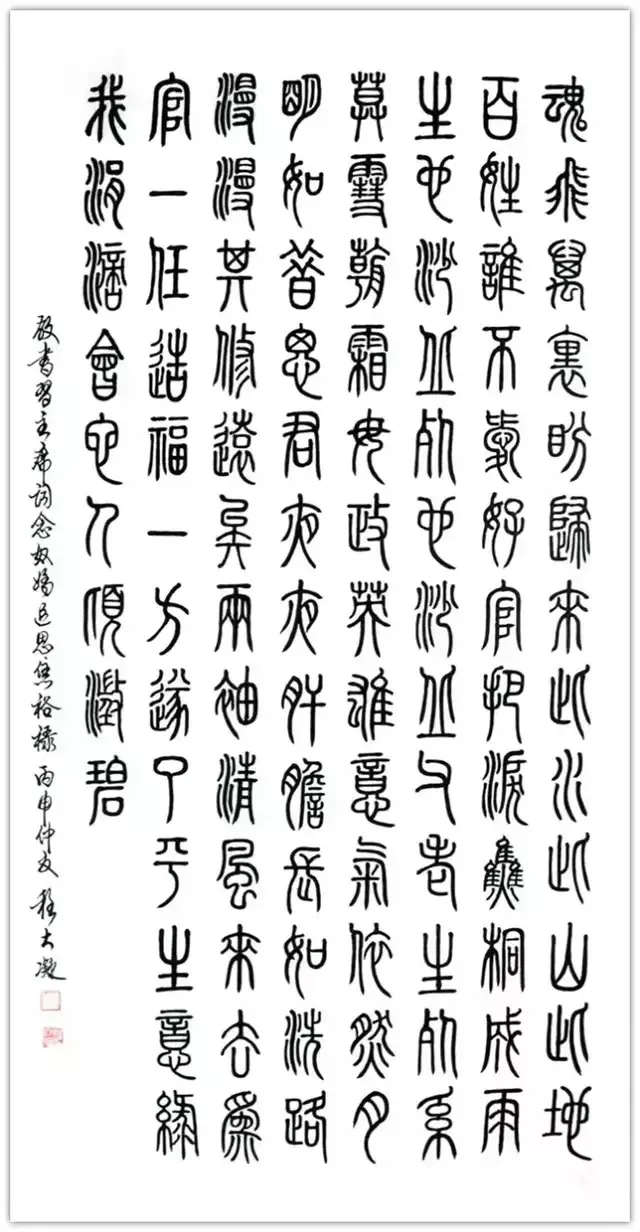 魂飛萬裏盼歸來此水此山此地
百姓誰不愛好官把淚焦桐成雨
生也沙丘死也沙丘父老生死系
莫雪朝霜毋改英雄意氣依然月
明如昔思君夜夜肝膽長如洗路
漫漫其修遠矣兩袖清風來去爲
官一任造福一方遂了平生意綠
我涓滴會它千頃澄碧
敬書習主席詞念奴嬌追思焦裕祿 丙申仲夏